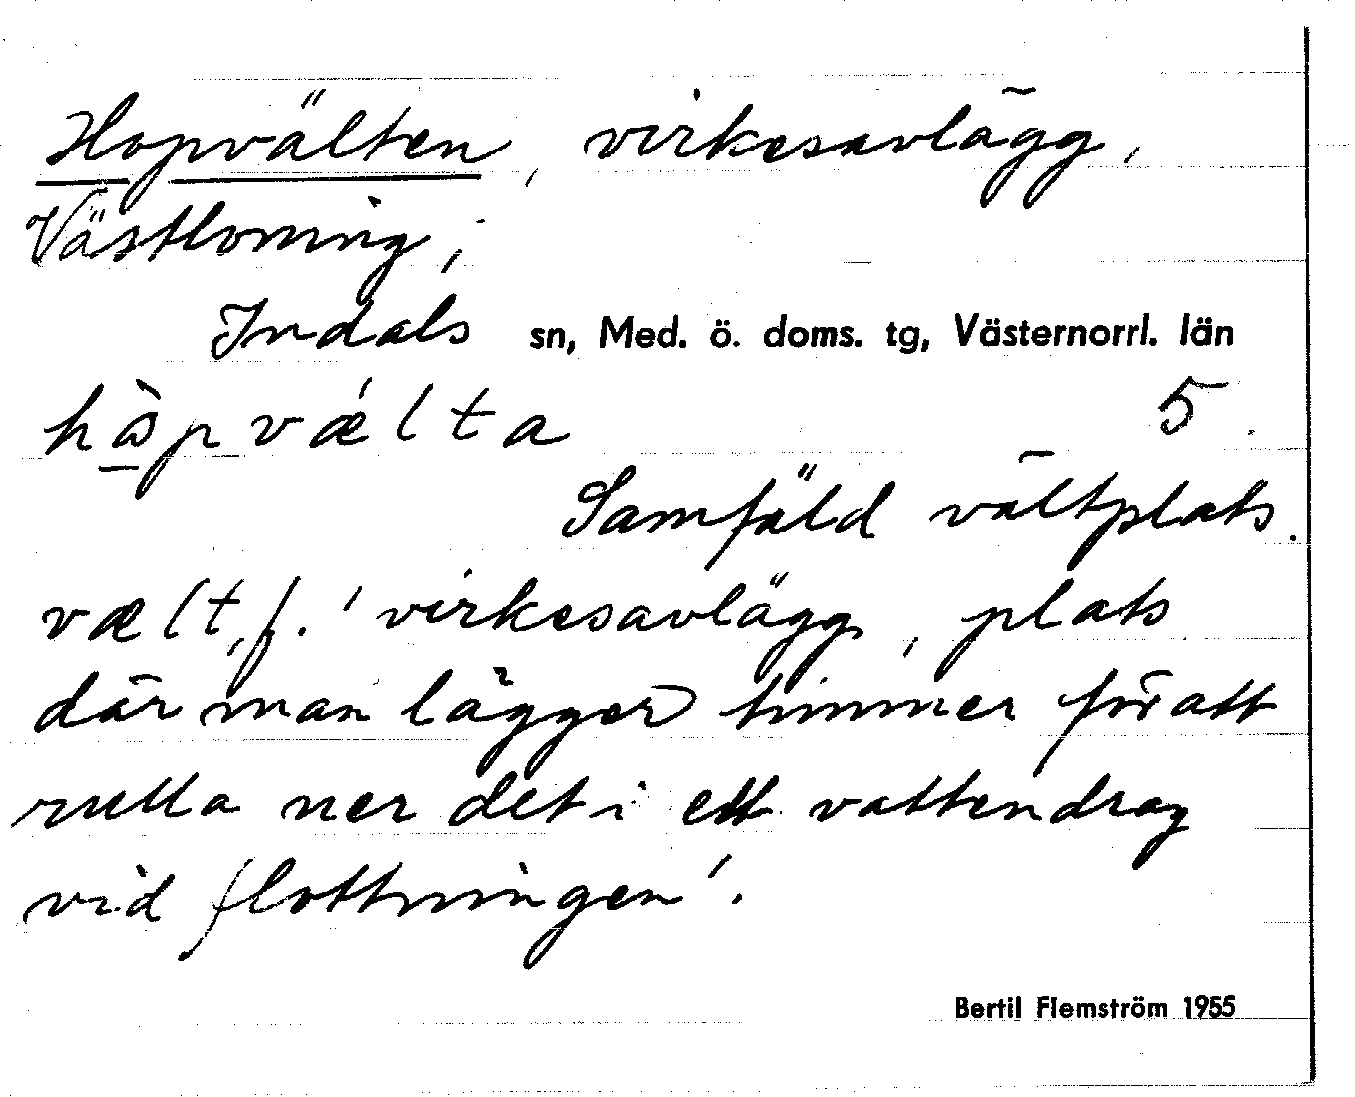 Hopvälten, virkesavlägg,
Västloning,
Indals sn, Med. ö. doms. tg, Västernorrl. län
hɷ̠̀pvǽlta 5.
Samfäld vältplats.
vælt, f. 'virkesavlägg, plats
där man lägger timmer föratt
rulla ner det i ett vattendrag
vid flottningen'.
Bertil Flemström 1955